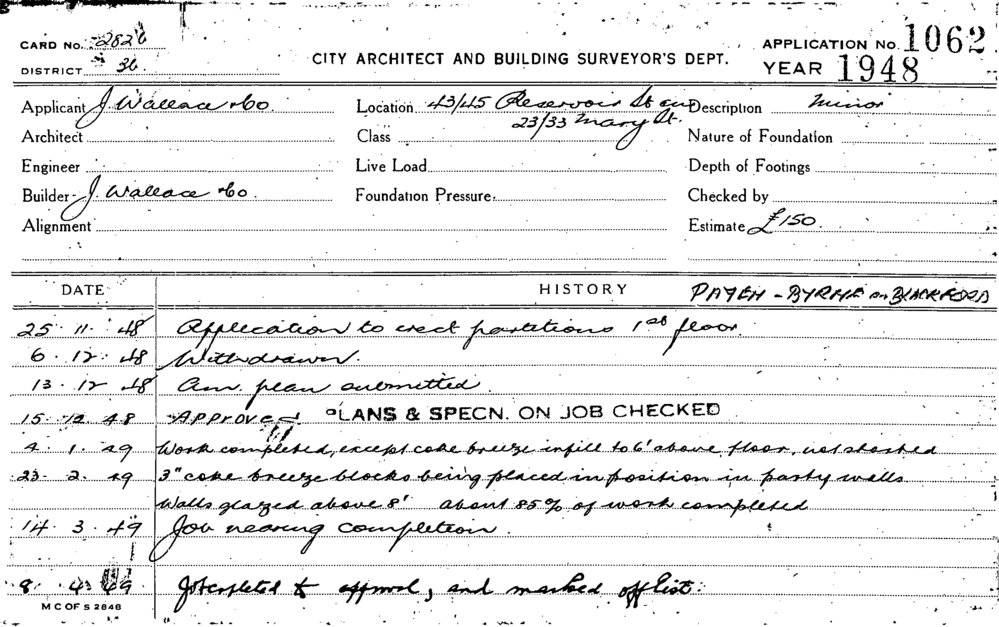 CARD No. 2826
DISTRICT 36
CITY ARCHITECT AND BUILDING SURVEYOR'S DEPT.
APPLICATION No. 1062
YEAR 1948
Applicant J. Wallace & Co
Location 43/45 Reservoir St and
23/33 Mary St.
Description Minor
Architect
Class
Nature of Foundation
Engineer
Live Load
Depth of Footings
Builder J. Wallace & Co.
Foundation Pressure
Checked by
Alignment
Estimate £150.
DATE
HISTORY
PAYEH - BYRHE on BLACKFORD
25. 11. 48 Application to erect partitions 1st floor.
6. 12. 48 Withdrawn.
13. 12 48 Am. plan submitted.
15. 12 48 APPROVED PLANS & SPECN. ON JOB CHECKED
4. 1. 49 Work completed, except coke breeze infill to 6' above floor, not started
23. 2. 49 3" coke breeze blocks being placed in position in party walls
Walls glazed above 8' about 85% of work completed
14. 3. 49 Job nearing completion.
8. 4. 49 Job completed to approval, and marked off list.
M C OF S 2848